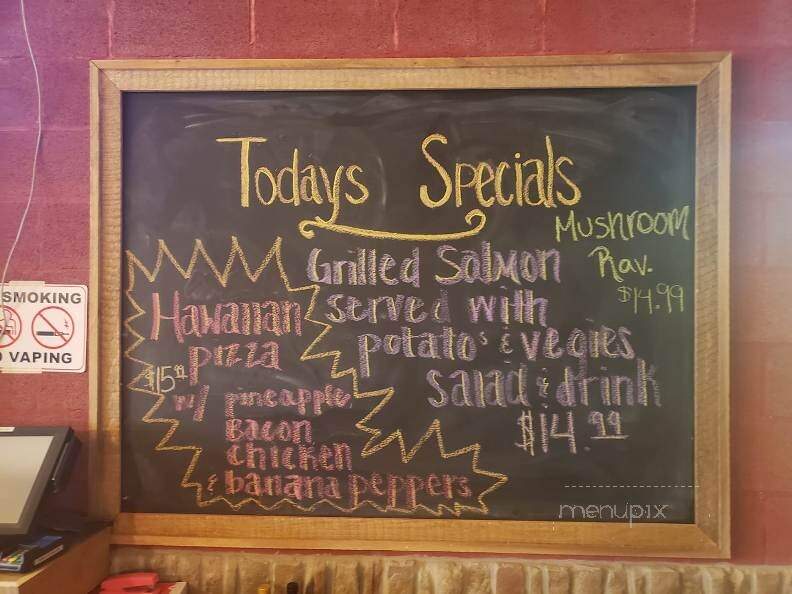 Todays Specials
Mushroom
Rav.
$14.99
Grilled Salmon
served with
potato's & vegies
salad & drink
$14.99
Hawaiian
pizza
$15.99
w/ pineapple,
Bacon
chicken
& banana peppers
SMOKING
VAPING
menupix